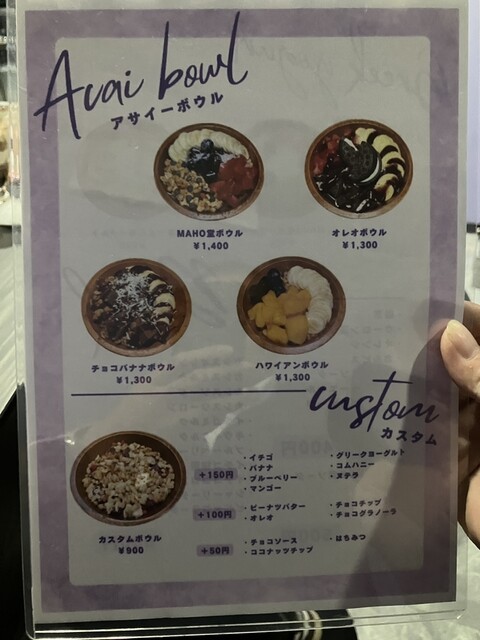 Acai bowl
アサイーボウル
MAHO堂ボウル
¥1,400
オレオボウル
¥1,300
チョコバナナボウル
¥1,300
ハワイアンボウル
¥1,300
custom
カスタム
カスタムボウル
¥900
+150円
・イチゴ
・バナナ
・ブルーベリー
・マンゴー
・グリークヨーグルト
・コムハニー
・ヌテラ
+100円
・ピーナツバター
・オレオ
・チョコチップ
・チョコグラノーラ
+50円
・チョコソース
・ココナッツチップ
・はちみつ